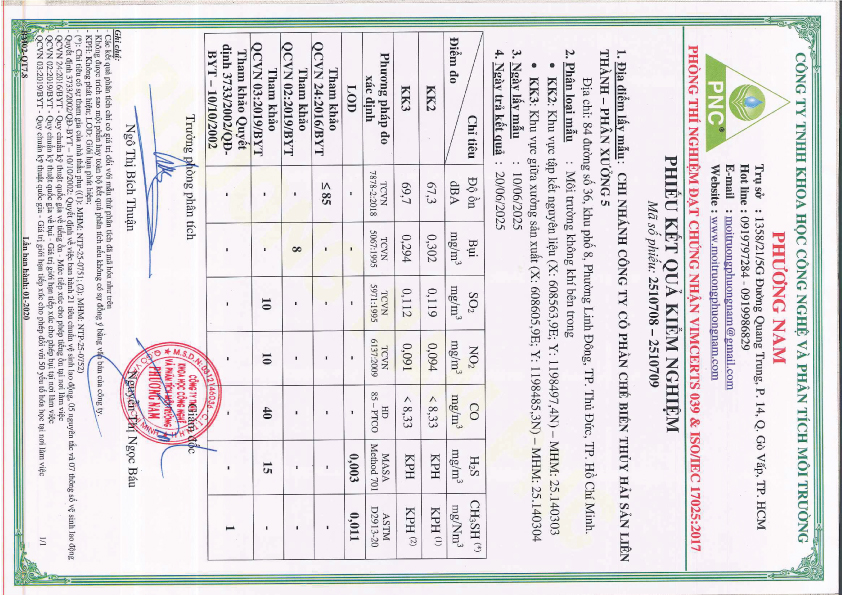 CÔNG TY TNHH KHOA HỌC CÔNG NGHỆ VÀ PHÂN TÍCH MÔI TRƯỜNG
PHƯƠNG NAM
PNC
Trụ sở : 1358/21/5G Đường Quang Trung, P. 14, Q. Gò Vấp, TP. HCM
Hot line : 0919797284 - 0919986829
E-mail : moitruongphuongnam@gmail.com
Website : www.moitruongphuongnam.com
PHÒNG THÍ NGHIỆM ĐẠT CHỨNG NHẬN VIMCERTS 039 & ISO/IEC 17025:2017
PHIẾU KẾT QUẢ KIỂM NGHIỆM
Mã số phiếu: 2510708 – 2510709
1. Địa điểm lấy mẫu: CHI NHÁNH CÔNG TY CỔ PHẦN CHẾ BIẾN THỦY HẢI SẢN LIÊN
THÀNH – PHÂN XƯỞNG 5
Địa chỉ: 84 đường số 36, khu phố 8, Phường Linh Đông, TP. Thủ Đức, TP. Hồ Chí Minh.
2. Phân loại mẫu : Môi trường không khí bên trong
• KK2: Khu vực tập kết nguyên liệu (X: 608563,9E; Y: 1198497,4N) – MHM: 25.140303
• KK3: Khu vực giữa xưởng sản xuất (X: 608605,9E; Y: 1198485,3N) – MHM: 25.140304
3. Ngày lấy mẫu : 10/06/2025
4. Ngày trả kết quả : 20/06/2025
Chỉ tiêu Độ ồn Bụi SO₂ NO₂ CO H₂S CH₃SH (*)
Điểm đo dBA mg/m³ mg/m³ mg/m³ mg/m³ mg/m³ mg/Nm³
KK2 67,3 0,302 0,119 0,094 < 8,33 KPH KPH (1)
KK3 69,7 0,294 0,112 0,091 < 8,33 KPH KPH (2)
Phương pháp đo TCVN TCVN TCVN TCVN HD MASA ASTM
xác định 7878-2:2018 5067:1995 5971:1995 6137:2009 85 – PTCO Method 701 D2913-20
LOD - - - - - 0,003 0,011
Tham khảo
QCVN 24:2016/BYT ≤ 85 - - - - - -
Tham khảo
QCVN 02:2019/BYT - 8 - - - - -
Tham khảo
QCVN 03:2019/BYT - - 10 10 40 15 -
Tham khảo Quyết
định 3733/2002/QĐ-
BYT – 10/10/2002 - - - - - - 1
Trưởng phòng phân tích
Giám đốc
M.S.D.N:
CÔNG TY TNHH
KHOA HỌC CÔNG NGHỆ
VÀ PHÂN TÍCH MÔI TRƯỜNG
PHƯƠNG NAM
Ngô Thị Bích Thuận
Nguyễn Thị Ngọc Báu
Ghi chú:
- Các kết quả phân tích chỉ có giá trị đối với mẫu thử phân tích đã mã hóa như trên.
- Không được trích sao một phần hay toàn bộ kết quả phân tích nếu không có sự đồng ý bằng văn bản của công ty.
- KPH: Không phát hiện; LOD: Giới hạn phát hiện;
- (*): Chỉ tiêu có sự tham gia của nhà thầu phụ ((1): MHM: NTP-25-0751; (2): MHM: NTP-25-0752)
- Quyết định 3733/2002/QĐ-BYT – 10/10/2002: Quyết định về việc ban hành 21 tiêu chuẩn vệ sinh lao động, 05 nguyên tắc và 07 thông số vệ sinh lao động
- QCVN 24:2016/BYT - Quy chuẩn kỹ thuật quốc gia về tiếng ồn - Mức tiếp xúc cho phép tiếng ồn tại nơi làm việc
- QCVN 02:2019/BYT - Quy chuẩn kỹ thuật quốc gia về bụi - Giá trị giới hạn tiếp xúc cho phép bụi tại nơi làm việc
- QCVN 03:2019/BYT - Quy chuẩn kỹ thuật quốc gia - Giá trị giới hạn tiếp xúc cho phép đối với 50 yếu tố hóa học tại nơi làm việc
BM02-QT7.8 Lần ban hành: 01-2020 1/1